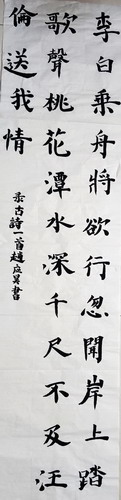 李白乘舟將欲行忽開岸上踏
歌聲桃花潭水深千尺不及汪
倫送我情
录古詩一首趙庭昊書